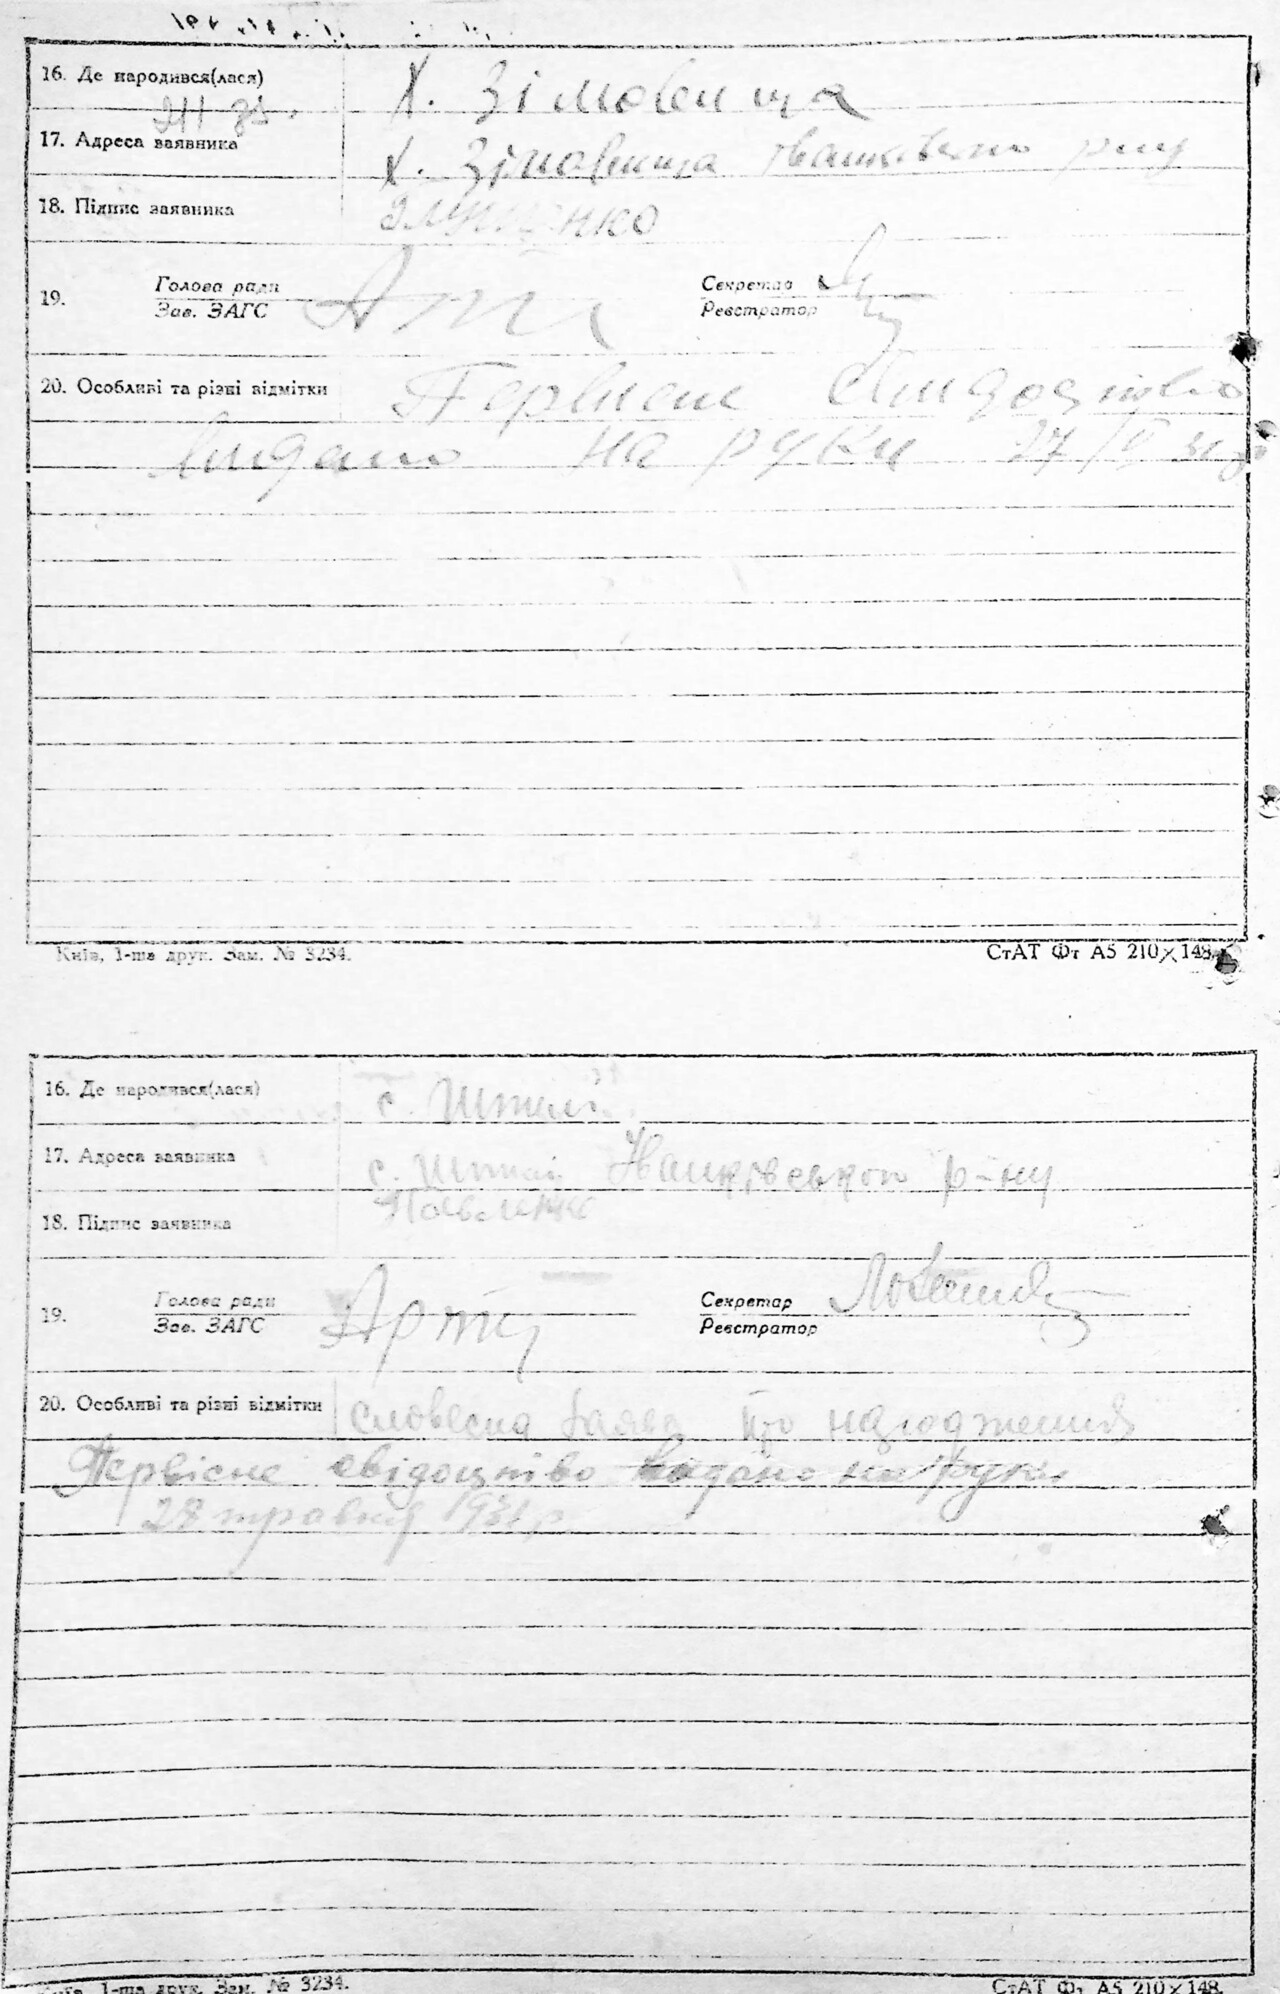 16. Де народився(лася) Х. Зімовища
17. Адреса заявника Х. Зімовища Іванківського р-ну
18. Підпис заявника
19. Голова ради Секретар
Зав. ЗАГС Реєстратор
20. Особливі та різні відмітки Первісне свидоцтво
видано на руки 27/V 31 р
Київ, 1-ша друк. Зам. № 3234. СтАТ Фт А5 210×148.
16. Де народився(лася) с. Шпилі
17. Адреса заявника с. Шпилі Іванківського р-ну
18. Підпис заявника
19. Голова ради Секретар
Зав. ЗАГС Реєстратор
20. Особливі та різні відмітки словесна заява про народження
Первісне свідоцтво видано на руки
28 травня 1931 р.
Київ, 1-ша друк. Зам. № 3234. СтАТ Фт А5 210×148.